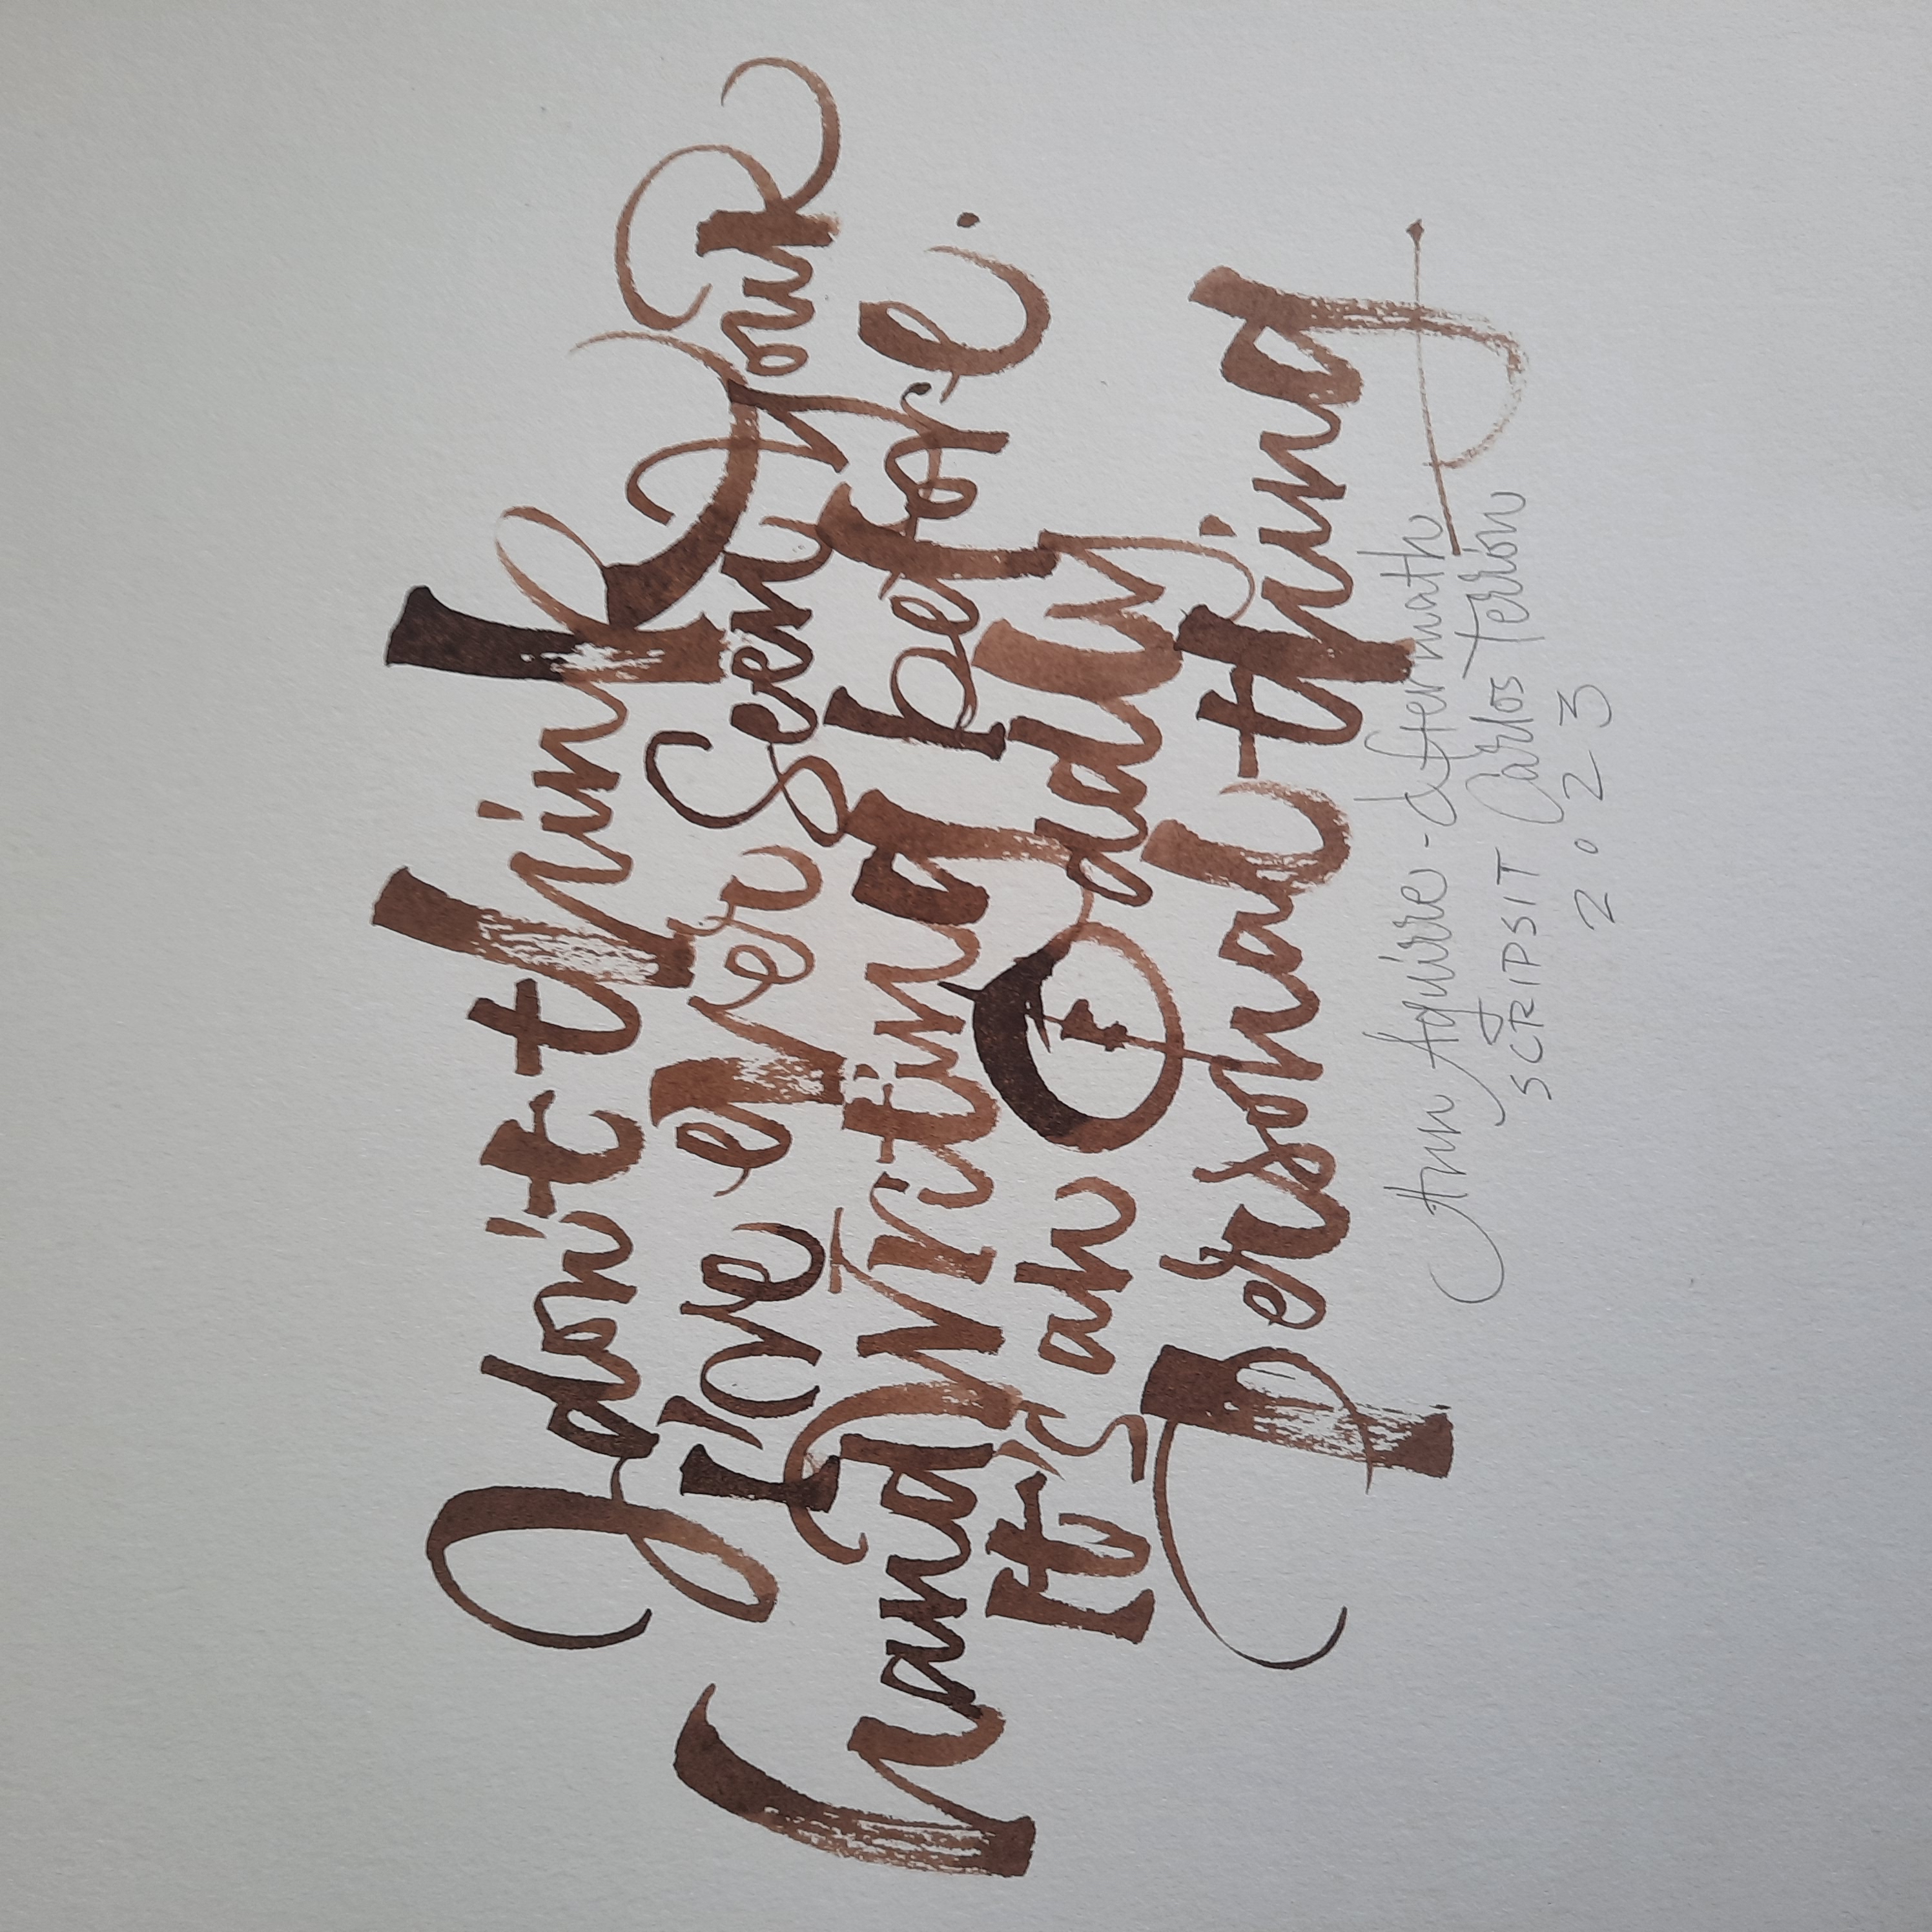 I don't think
I love ever Seen your
handwriting before.
It's an Oddly
Personal thing
Ann Aguirre - Aftermath
SCRIPSIT Carlos Terrón
2023